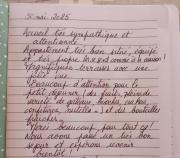 30 mai 2025
Accueil très sympathique et
attentionné
Appartement très bien situé, équipé
et très propre (on se sent comme à la maison)
Magnifiques terrasses avec une
jolie vue
Beaucoup d'attention pour le
petit déjeuner (des fruits, grande
variété de gâteaux, brioches, cachou,
confitures, nutella...) et des bouteilles
fraîches
Merci beaucoup pour tout ça!
Nous avons passé un très bon
séjour et espérons revenir
bientôt!